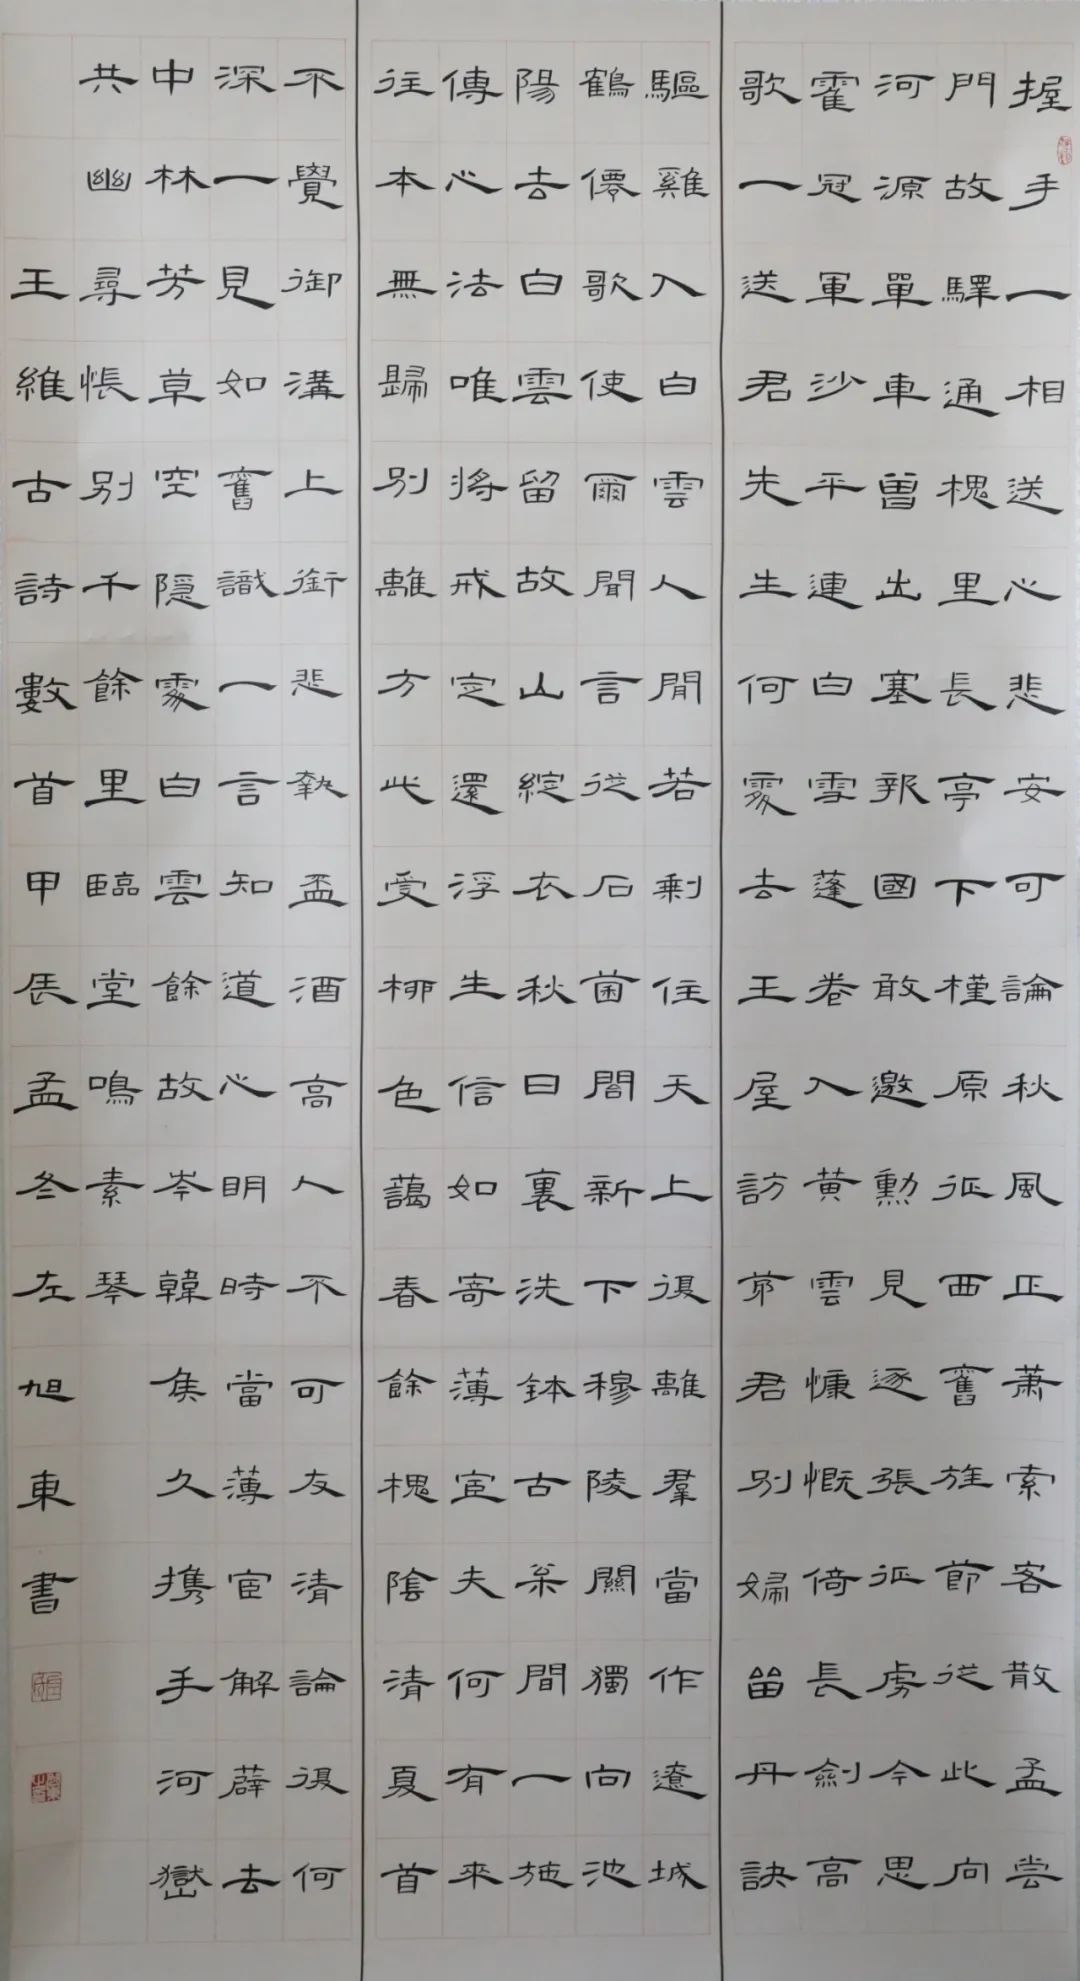 握手一相送心悲安可論秋風正蕭索客散孟嘗
門故驛通槐里長亭下槿原征西舊旌節從此向
河源單車曾出塞報國敢邀勳見逐張征虜今思
霍冠軍沙平連白雪蓬卷入黃雲慷慨倚長劍高
歌一送君先生何處去王屋訪茆君別婦留丹訣
驅雞入白雲人間若剩住天上復離羣當作遼城
鶴僊歌使爾聞言從石菌閣新下穆陵關獨向池
陽去白雲留故山綻衣秋日裏洗鉢古枀間一施
傳心法唯將戒定還浮生信如寄薄宦夫何有來
往本無歸別離方此受柳色藹春餘槐陰清夏首
不覺御溝上銜悲執盃酒高人不可友清論復何
深一見如舊識一言知道心明時當薄宦解薜去
中林芳草空隱處白雲餘故岑韓侯久携手河嶽
共幽尋悵別千餘里臨堂鳴素琴
王維古詩數首甲辰孟冬左旭東書